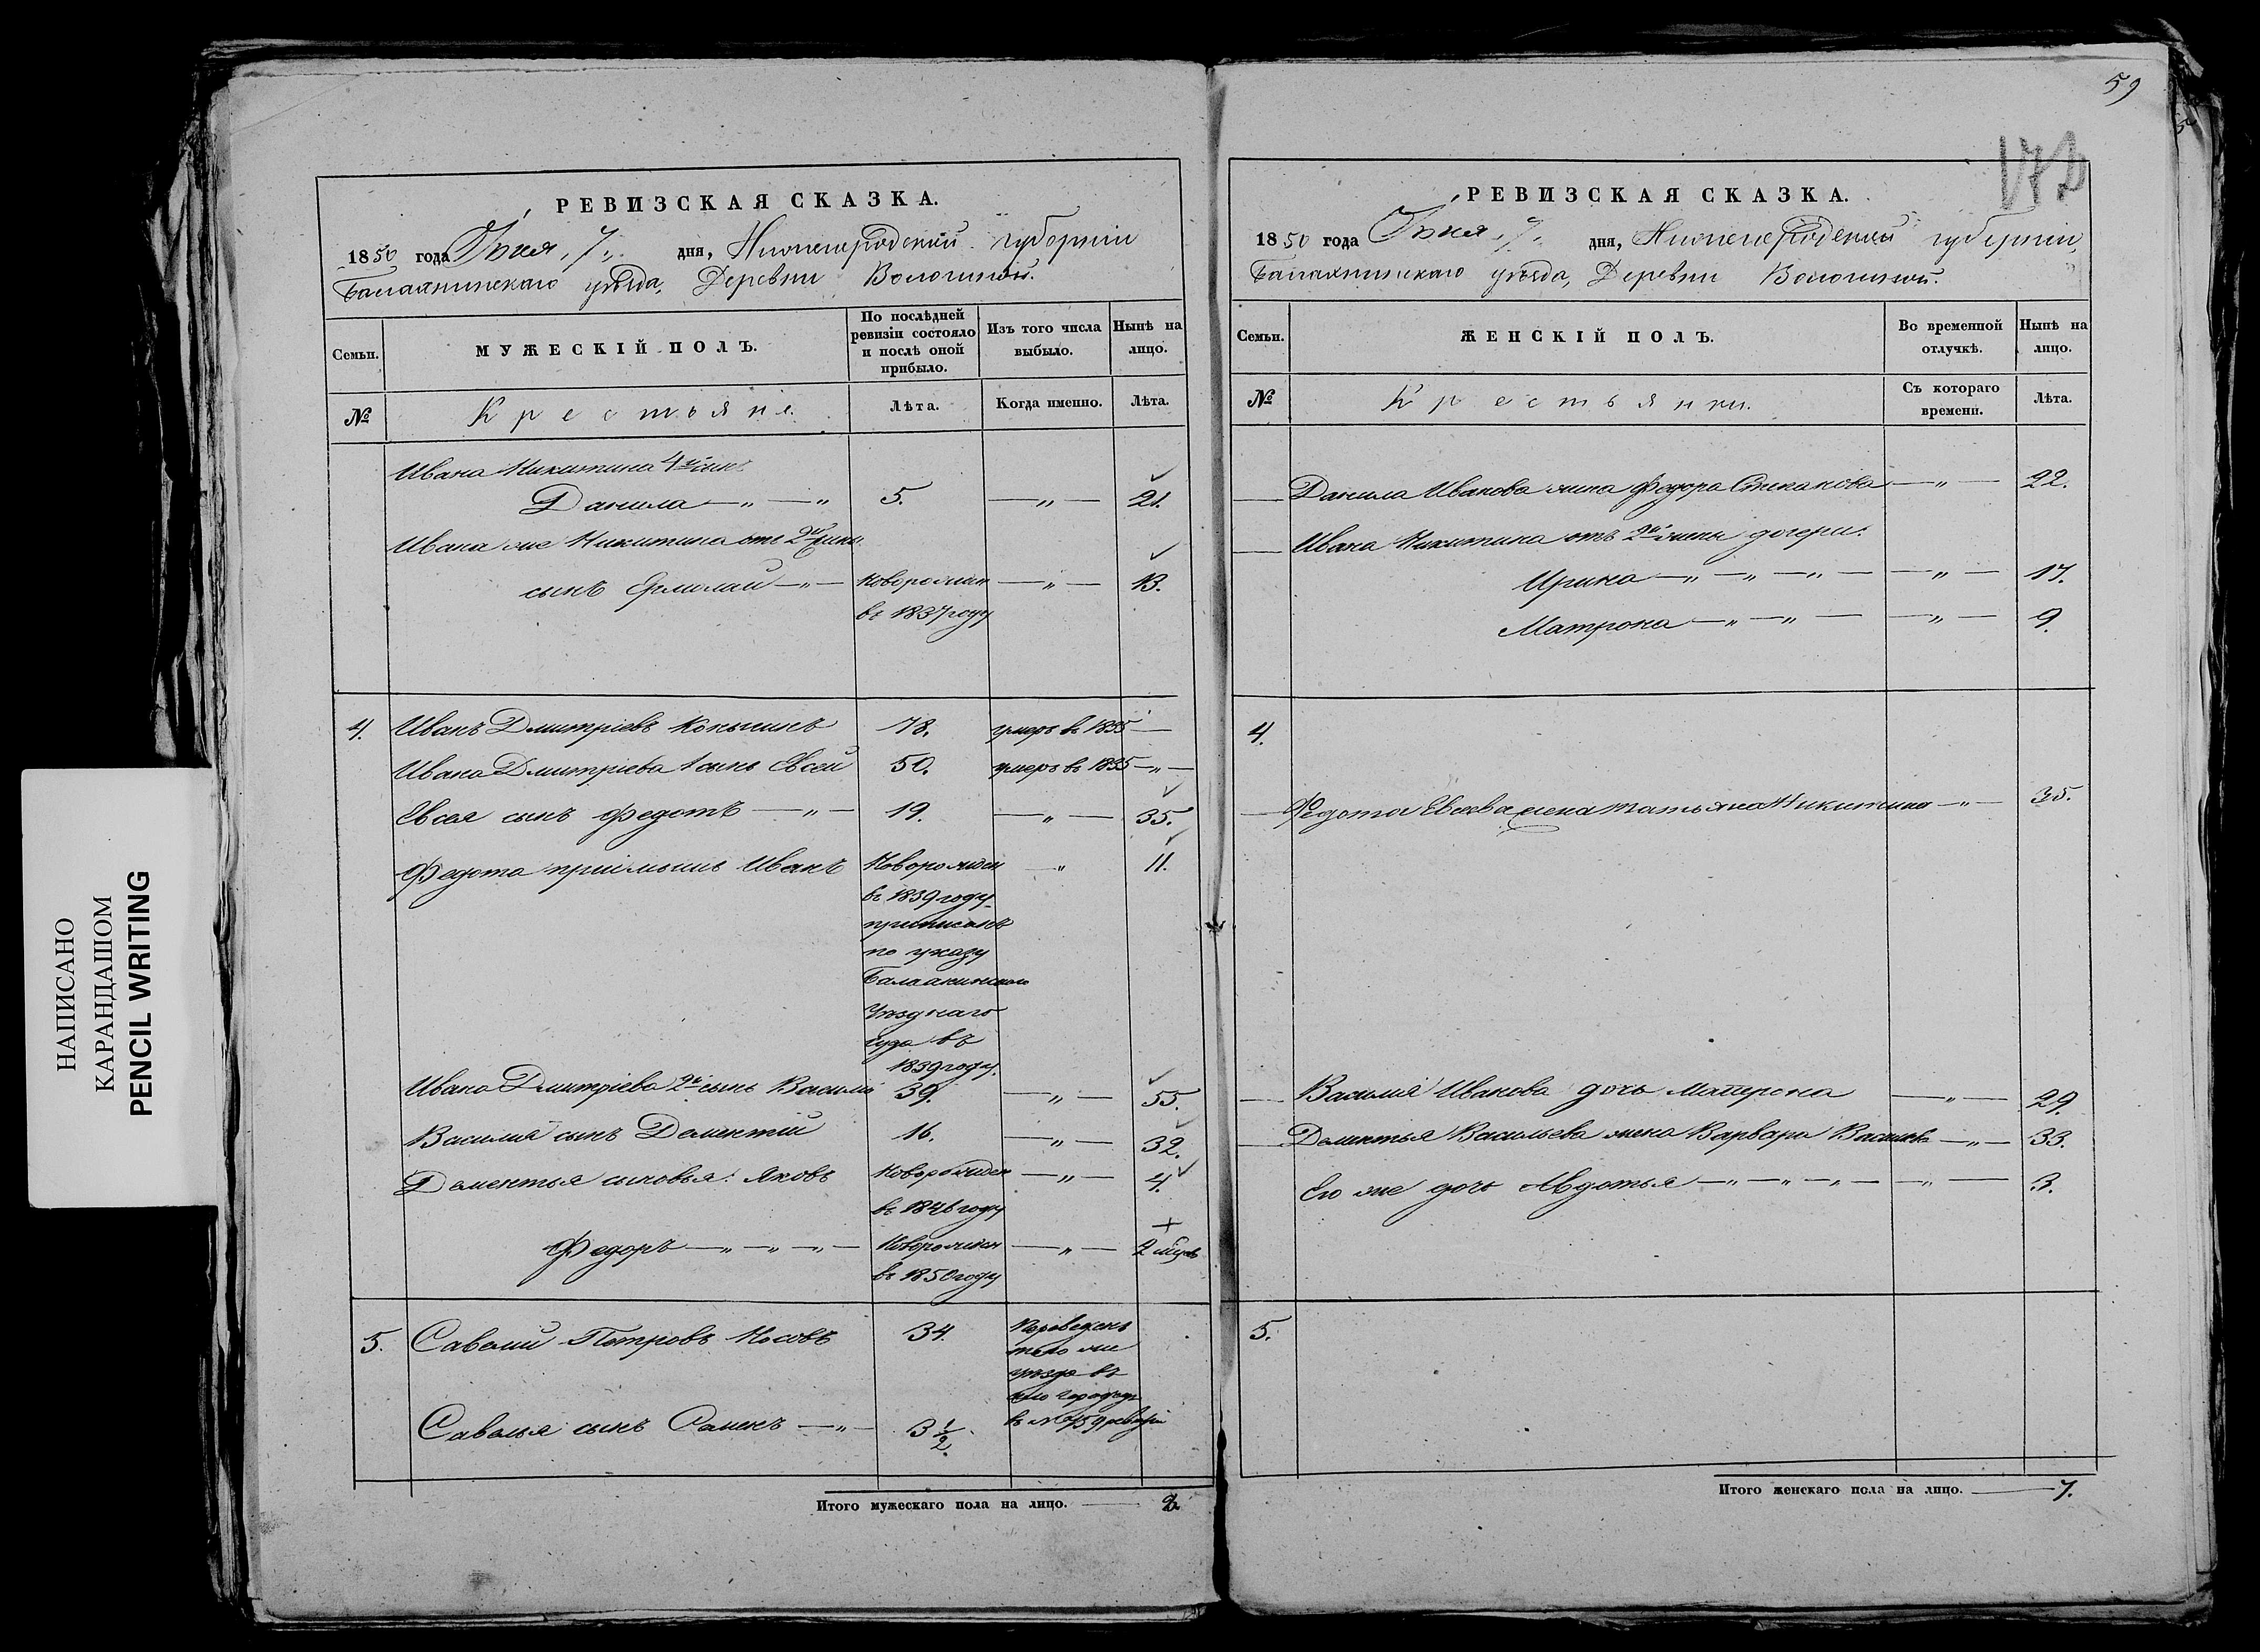 59
НАПИСАНО
КАРАНДАШОМ
PENCIL WRITING
РЕВИЗСКАЯ СКАЗКА.
1850 года Іюня 7 дня, Нижегородской губерніи
Балахнинскаго уѣзда, Деревни
Семьи.
МУЖЕСКІЙ ПОЛЪ.
По послѣдней ревизіи состояло и послѣ оной прибыло.
Изъ того числа выбыло.
Нынѣ на лицо.
№
Крестьяне.
Лѣта.
Когда именно.
Лѣта.
Ивана Никитина 4й сынъ
Данила — „ — „ 5. — „ — 21.
Ивана же Никитина отъ 2й жены
сынъ Ермолай — „ — новорожден — „ — 13.
въ 1837 году
4. Иванъ Дмитріевъ 78. умеръ въ 1835 —
Ивана Дмитріева 1 сынъ Евсей 50. умеръ въ 1835 — „ —
Евсея сынъ Федотъ — „ — 19. — „ — 35.
Федота пріимышъ Иванъ Новорожден — „ 11.
въ 1839 году
приписанъ
по указу
Балахнинскаго
Уѣзднаго
суда въ
1839 году.
Ивана Дмитріева 2й сынъ Василій 39. — „ — 55.
Василія сынъ Дементій 16. — „ — 32.
Дементья сыновья: Яковъ Новорожден — „ — 4.
въ 1846 году
Федоръ — „ — „ — „ — Новорожден — „ — 2 мѣсяц
въ 1850 году
5. Савелій Петровъ Носовъ 34. Переведенъ
того же
уѣзда въ
село Городецъ
въ №
Савелья сынъ Семенъ — „ — 3 1/2.
Итого мужескаго пола на лицо. —
РЕВИЗСКАЯ СКАЗКА.
1850 года Іюня 7 дня, Нижегородской губерніи,
Балахнинскаго уѣзда, Деревни
Семьи.
ЖЕНСКІЙ ПОЛЪ.
Во временной отлучкѣ.
Нынѣ на лицо.
№
Крестьянки.
Съ котораго времени.
Лѣта.
— Данила Иванова жена Федора Степанова — „ — 22.
— Ивана Никитина отъ 2й жены дочери:
Ирина — „ — „ — „ — — „ — 17.
Матрона — „ — „ — — „ — 9.
4.
— Федота Евсеева жена Татьяна Никитина — „ — 35.
— Василія Иванова дочь Матрона — „ — 29.
— Дементья Васильева жена Варвара Васильева — „ — 33.
Его же дочь Авдотья — „ — „ — „ — — „ — 3.
5.
Итого женскаго пола на лицо. — 7.